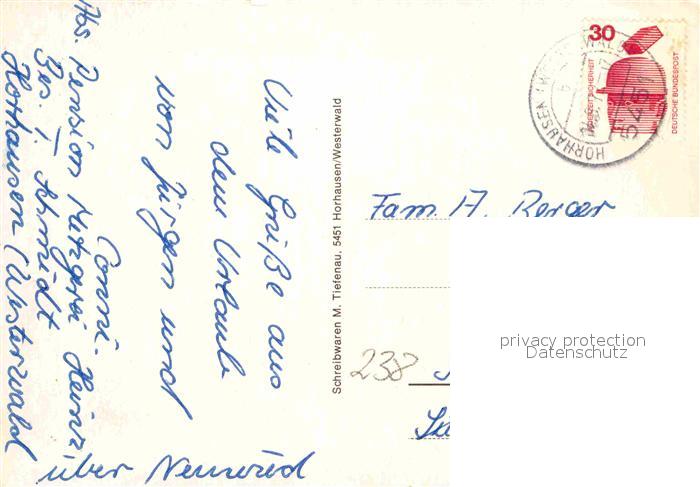 Viele Grüße aus
dem Urlaub
von Jürgen und
Conni.
Abs. Pension Metzgerei Heinz
Bes. I. Schmidt
Horhausen (Westerwald
über Neuwied
Schreibwaren M. Tiefenau. 5451 Horhausen/Westerwald
30
JEDERZEIT SICHERHEIT
DEUTSCHE BUNDESPOST
HORHAUSEN (WESTERWALD)
5451
Fam A. Berger
238
privacy protection
Datenschutz